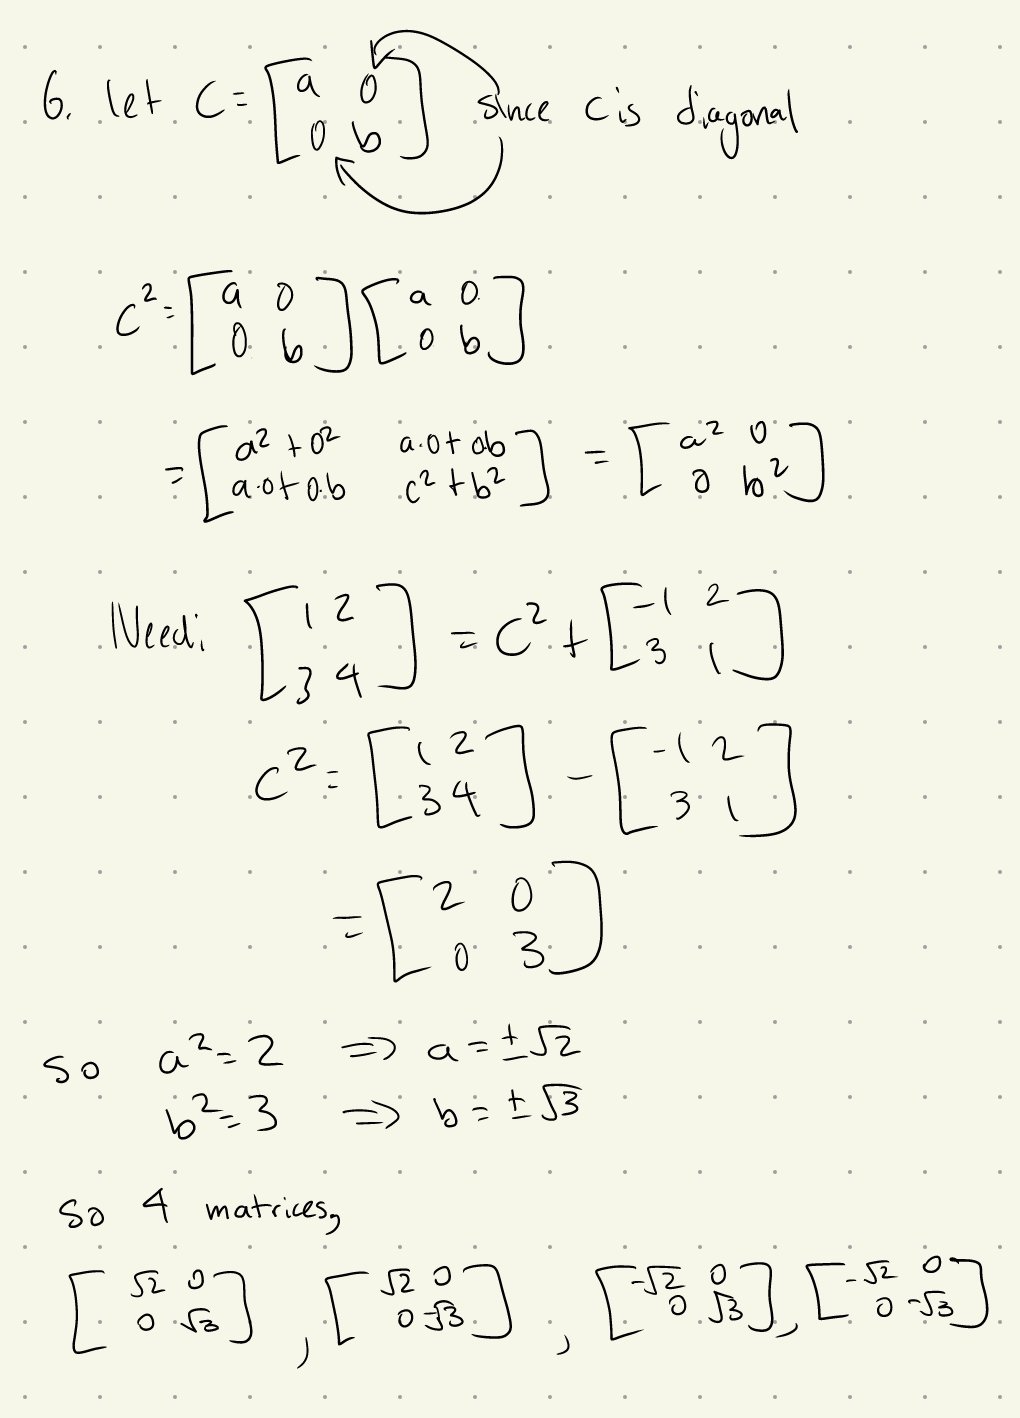 6. let C = [a 0; 0 b] since C is diagonal
C² = [a 0; 0 b] [a 0; 0 b]
= [a² + 0² a·0 + 0b; a·0 + 0·b c² + b²] = [a² 0; 0 b²]
Need: [1 2; 3 4] = C² + [-1 2; 3 1]
C² = [1 2; 3 4] - [-1 2; 3 1]
= [2 0; 0 3]
So a² = 2 ⇒ a = ±√2
b² = 3 ⇒ b = ±√3
So 4 matrices,
[√2 0; 0 √3], [√2 0; 0 -√3], [-√2 0; 0 √3], [-√2 0; 0 -√3]